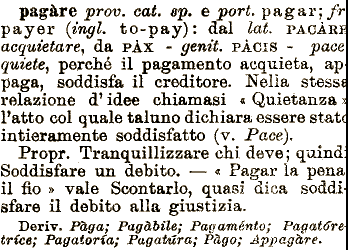 pagàre prov. cat. sp. e port. pagar; fr
payer (ingl. to-pay): dal lat. PACÀRE
acquietare, da PÀX - genit. PÀCIS - pace
quiete, perché il pagamento acquieta, ap-
paga, soddisfa il creditore. Nella stessa
relazione d'idee chiamasi « Quietanza »
l'atto col quale taluno dichiara essere stato
intieramente soddisfatto (v. Pace).
Propr. Tranquillizzare chi deve; quindi
Soddisfare un debito. — « Pagar la pena
il fio » vale Scontarlo, quasi dica soddi-
sfare il debito alla giustizia.
Deriv. Pàga; Pagàbile; Pagaménto; Pagatóre-
trìce; Pagatoría; Pagatúra; Pàgo; Appagàre.